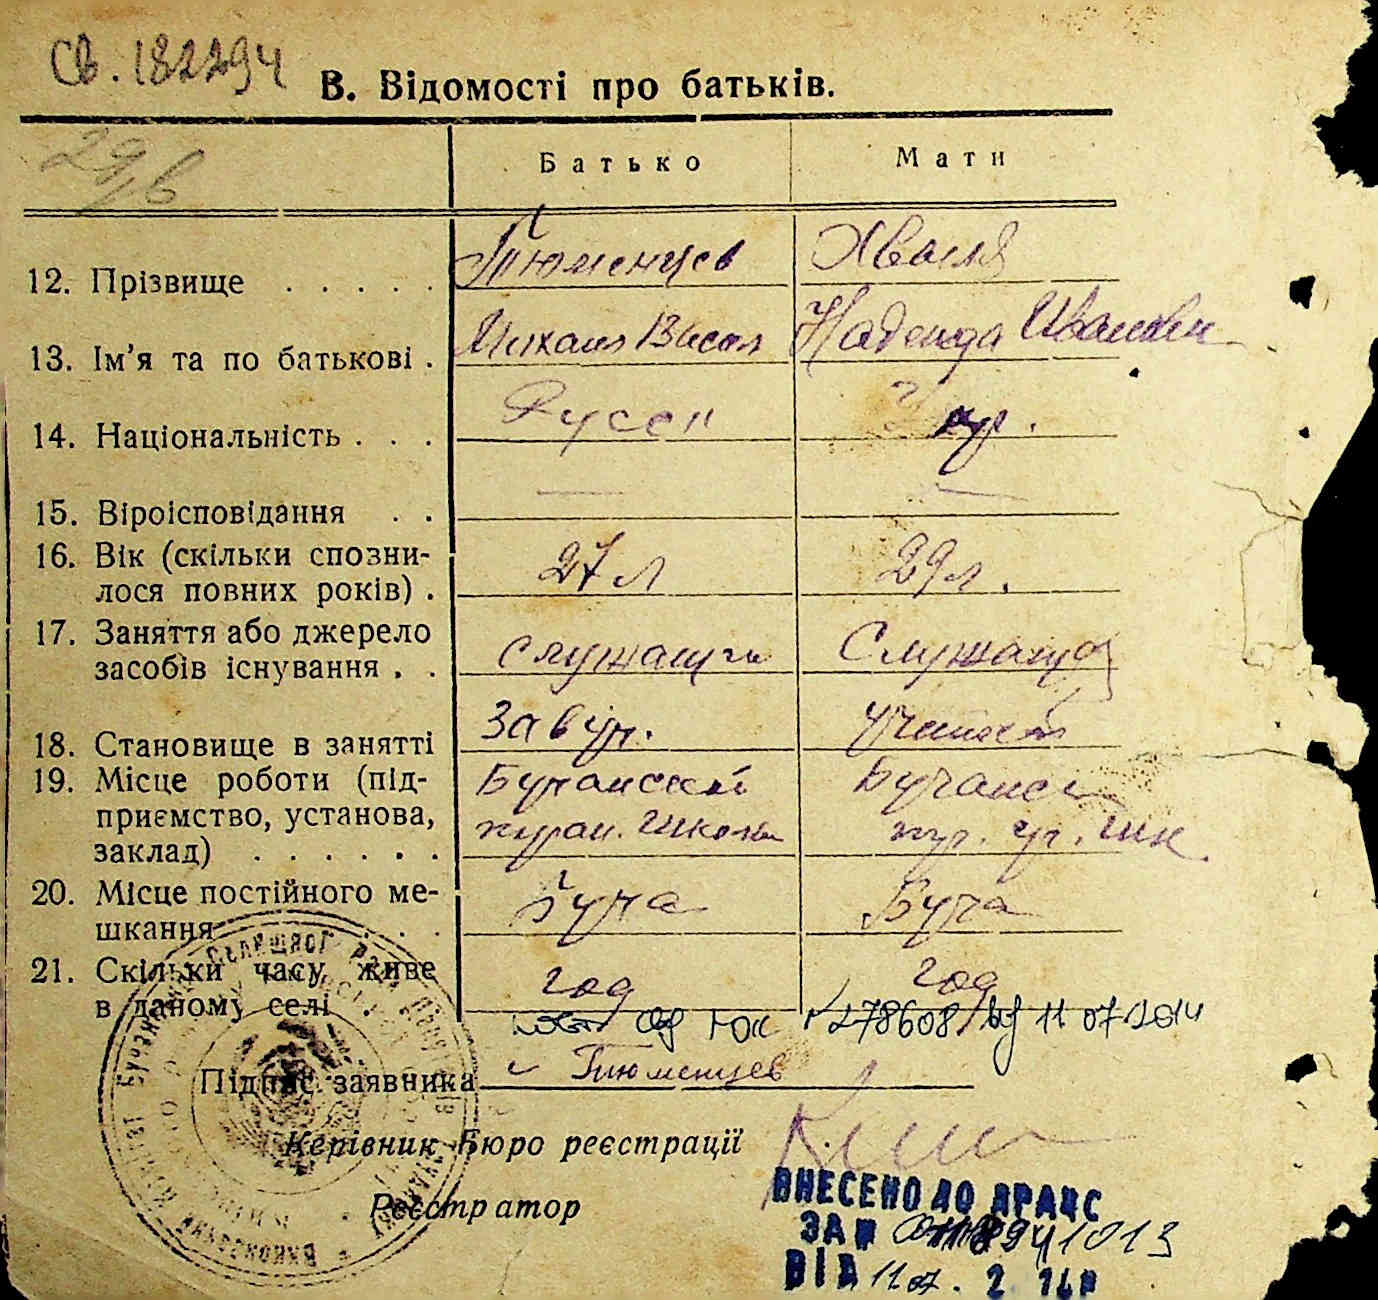 Св. 182294
В. Відомості про батьків.
29/в
Батько Мати
12. Прізвище . . . . . Тюменцев Хваля
13. Ім’я та по батькові . Михаил Васил Надежда Ивановн
14. Національність . . . Русск Укр.
15. Віроісповідання . . — —
16. Вік (скільки спозни-
лося повних років) . 27 л 29 л.
17. Заняття або джерело
засобів існування . . служащи Служащ
18. Становище в занятті Завуч. учитель
19. Місце роботи (під-
приємство, установа,
заклад) . . . . . . Бучанск школа Бучанск шк.
20. Місце постійного ме-
шкання . . . Буча Буча
21. Скільки часу живе
в даному селі год год
278608 від 11 07 2014
Підпис заявника Тюменцев
Керівник Бюро реєстрації
Реєстратор
ВНЕСЕНО ДО ДРАЦС
ЗА №
ВІД 11 07. 2 14р